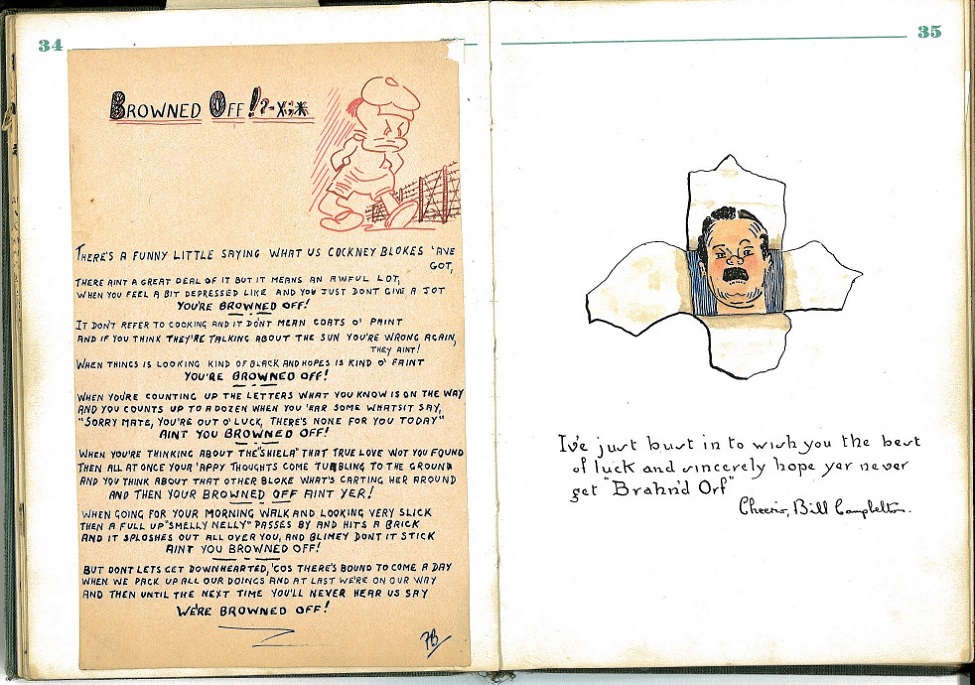 34
BROWNED OFF!?-X;;*
THERE'S A FUNNY LITTLE SAYING WHAT US COCKNEY BLOKES 'AVE
GOT,
THERE AINT A GREAT DEAL OF IT BUT IT MEANS AN AWFUL LOT,
WHEN YOU FEEL A BIT DEPRESSED LIKE AND YOU JUST DONT GIVE A JOT
YOU'RE BROWNED OFF!
IT DON'T REFER TO COOKING AND IT DON'T MEAN COATS O' PAINT
AND IF YOU THINK THEY'RE TALKING ABOUT THE SUN YOU'RE WRONG AGAIN,
THEY AINT!
WHEN THINGS IS LOOKING KIND OF BLACK AND HOPES IS KIND O' FAINT
YOU'RE BROWNED OFF!
WHEN YOU'RE COUNTING UP THE LETTERS WHAT YOU KNOW IS ON THE WAY
AND YOU COUNTS UP TO A DOZEN WHEN YOU 'EAR SOME WHATSIT SAY,
"SORRY MATE, YOU'RE OUT O' LUCK, THERE'S NONE FOR YOU TODAY"
AINT YOU BROWNED OFF!
WHEN YOU'RE THINKING ABOUT THE "SHIELA" THAT TRUE LOVE WOT YOU FOUND
THEN ALL AT ONCE YOUR 'APPY THOUGHTS COME TUMBLING TO THE GROUND
AND YOU THINK ABOUT THAT OTHER BLOKE WHAT'S CARTING HER AROUND
AND THEN YOUR BROWNED OFF AINT YER!
WHEN GOING FOR YOUR MORNING WALK AND LOOKING VERY SLICK
THEN A FULL UP "SMELLY NELLY" PASSES BY AND HITS A BRICK
AND IT SPLOSHES OUT ALL OVER YOU, AND BLIMEY DONT IT STICK
AINT YOU BROWNED OFF!
BUT DONT LETS GET DOWNHEARTED, 'COS THERE'S BOUND TO COME A DAY
WHEN WE PACK UP ALL OUR DOINGS AND AT LAST WE'RE ON OUR WAY
AND THEN UNTIL THE NEXT TIME YOU'LL NEVER HEAR US SAY
WE'RE BROWNED OFF!
35
I've just bust in to wish you the best
of luck and sincerely hope yer never
get "Brahn'd Orf"
Cheerio, Bill Campbelton.